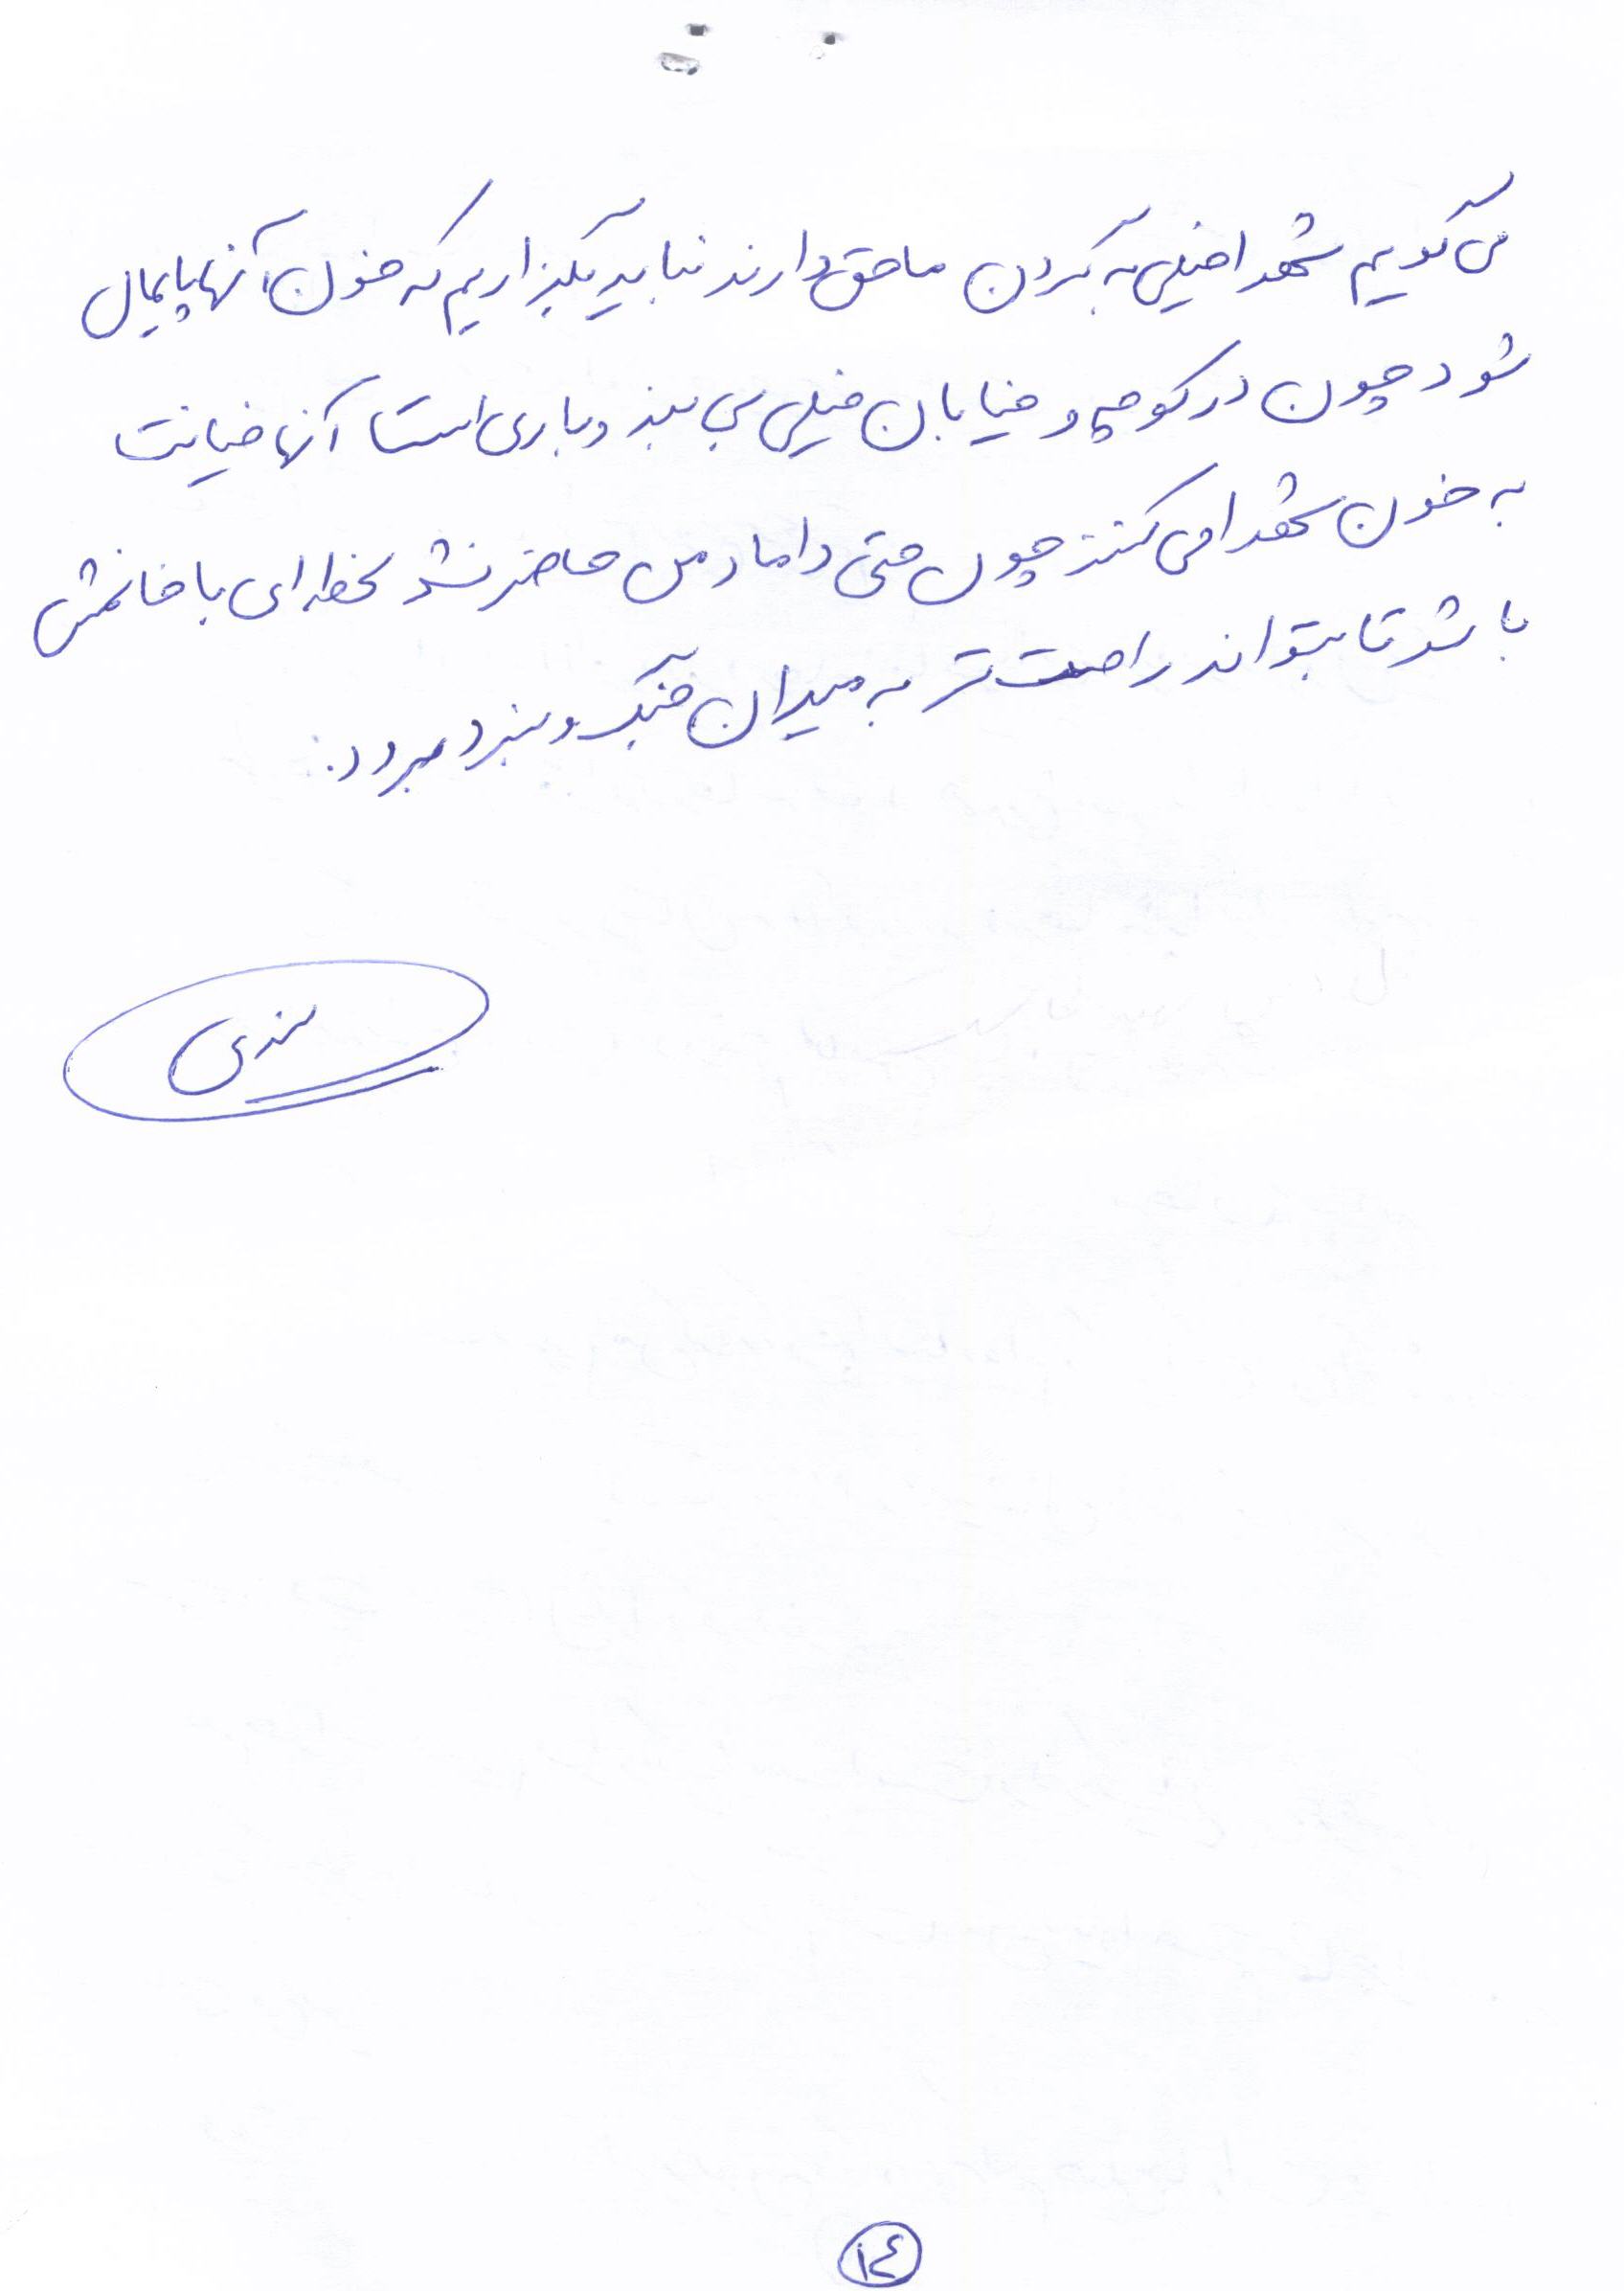 می گویم شهدا خیلی به گردن ما حق دارند نباید بگذاریم که خون آنها پایمال
شود چون در کوچه و خیابان خیلی بی بند و باری است آنها خیانت
به خون شهدا می کنند چون حتی داماد من حاضر نشد لحظه ای با خانمش
باشد تا بتواند راحت تر به میدان جنگ و نبرد برود.
۱٤